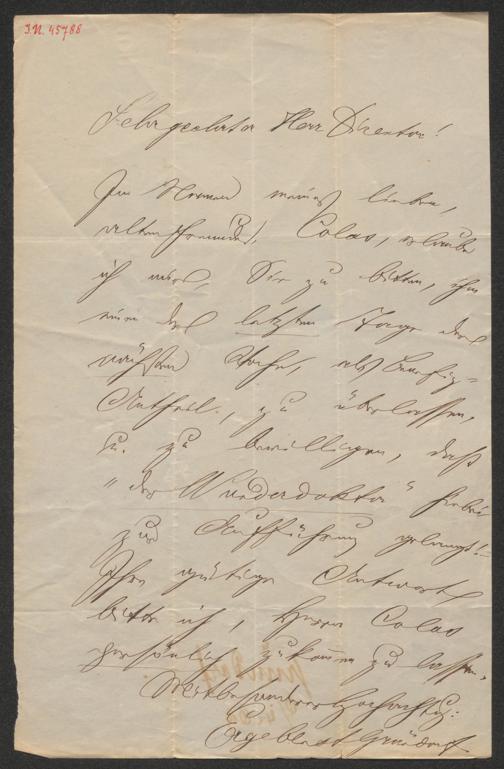 I.N. 45788
Sehr geehrter Herr Director!
Im Namen meines lieben,
alten Freundes, Colas, erlaube
ich mir, Sie zu bitten, ihm
einen der letzten Tage der
nächsten Woche, als Benefiz-
Antheil, zu überlassen,
u. zu bewilligen, daß
"der Wunderdoktor" hiebei
zur Aufführung gelangt!
Ihre gütige Antwort
bitte ich, Herrn Colas
persönlich zukommen zu lassen.
Mit besonderer Hochachtung:
Ergebenst Gründorf